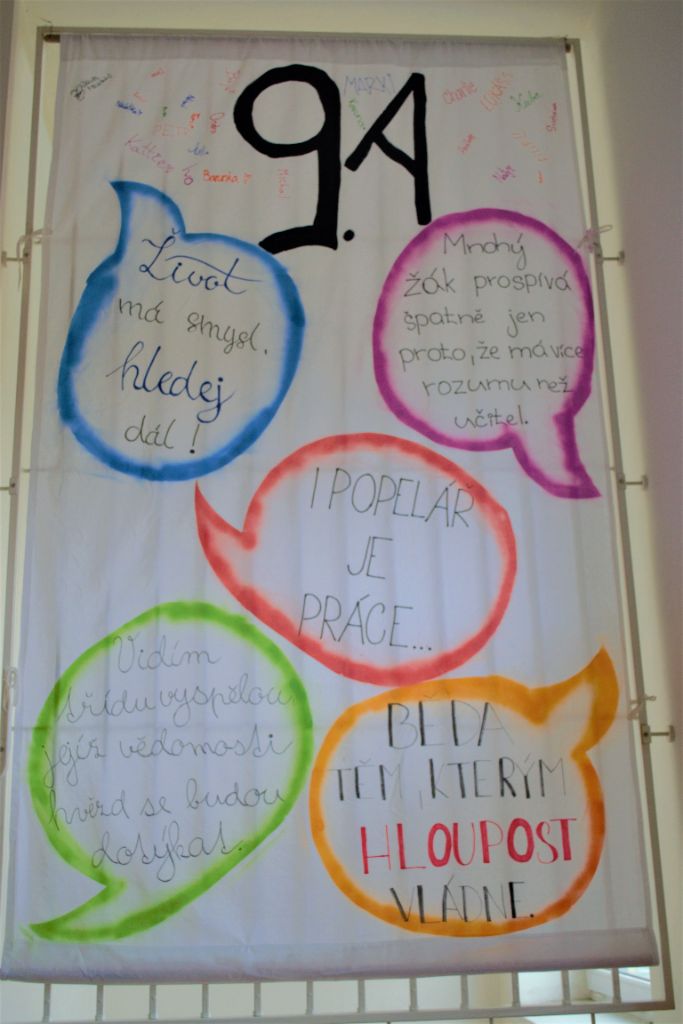 9.A
MARKI
PETR
Barunka
Život
má smysl,
hledej
dál!
Mnohý
žák prospívá
špatně jen
proto, že má více
rozumu než
učitel.
I POPELÁŘ
JE
PRÁCE...
Vidím
třídu vyspělou,
jejíž vědomosti
hvězd se budou
dotýkat.
BĚDA
TĚM, KTERÝM
HLOUPOST
VLÁDNE.